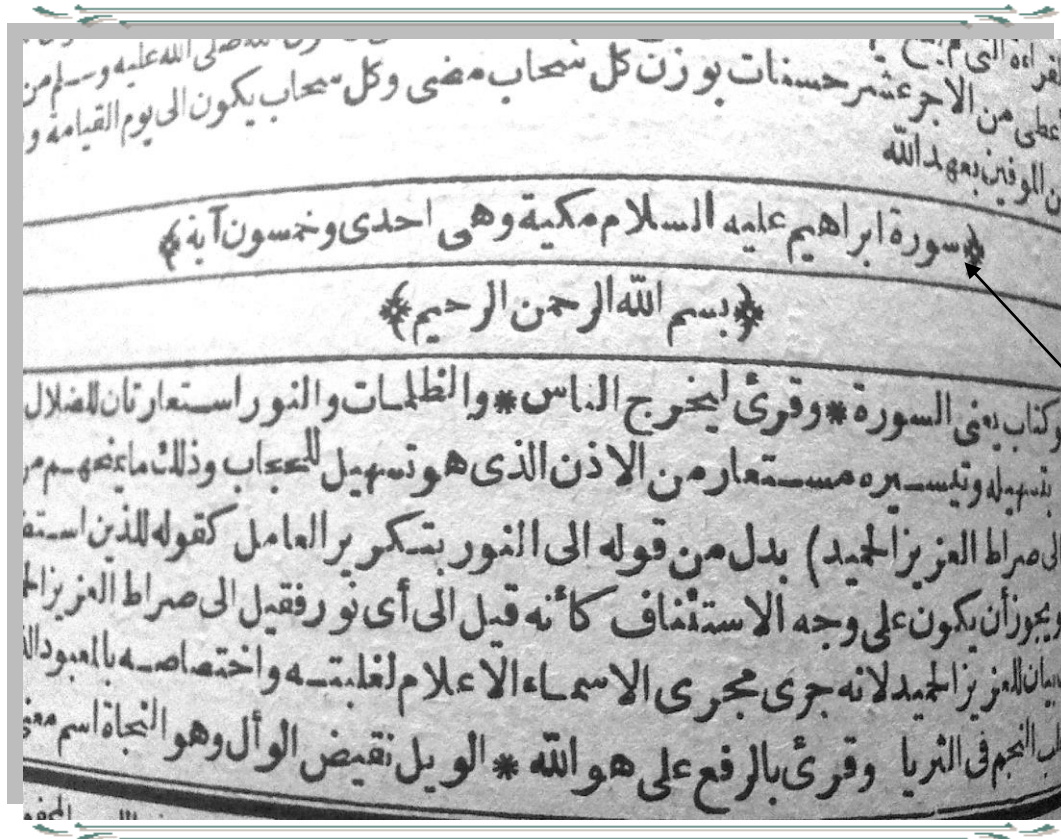 صلى الله عليه وسلم من
الاجر عشر حسنات بوزن كل سحاب مضى وكل سحاب يكون الى يوم القيامة و
الموفين بعهد الله
﴿سورة ابراهيم عليه السلام مكية وهى احدى وخمسون آية﴾
﴿بسم الله الرحمن الرحيم﴾
كتاب يعنى السورة * وقرئ ليخرج الناس * والظلمات والنور استعارتان للضلال
بتسهيله وتيسيره مستعار من الاذن الذى هو تسهيل للحجاب وذلك ما يمنحهم من
الى صراط العزيز الحميد) بدل من قوله الى النور بتكرير العامل كقوله للذين استضـ
ويجوز أن يكون على وجه الاستئناف كأنه قيل الى أى نور فقيل الى صراط العزيز الحـ
بيان للعزيز الحميد لانه جرى مجرى الاسماء الاعلام لغلبته واختصاصه بالمعبود الذ
النجم فى الثريا وقرئ بالرفع على هو الله * الويل نقيض الوأل وهو النجاة اسم معنى